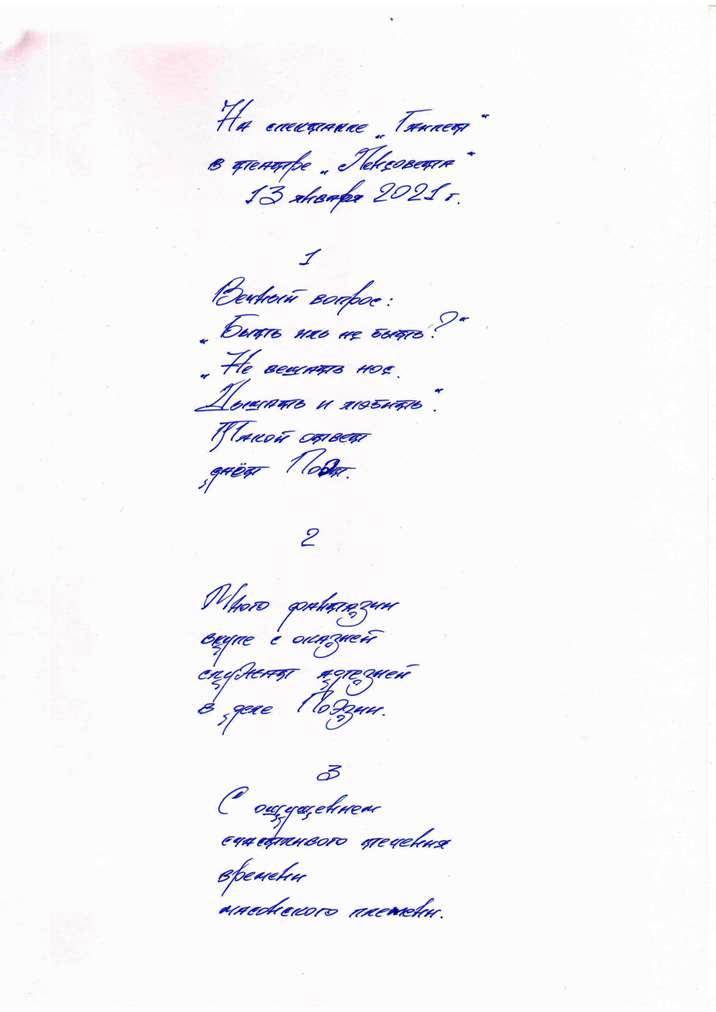 На спектакле „Гамлет“
в театре „Ленсовета“
13 января 2021 г.
1
Вечный вопрос:
„Быть иль не быть?“
„Не вешать нос.
Дышать и любить“.
Такой ответ
даёт Поэт.
2
Много фантазии
вкупе с оказией
служат
в деле Поэзии.
3
С ощущением
счастливого течения
времени
масонского племени.